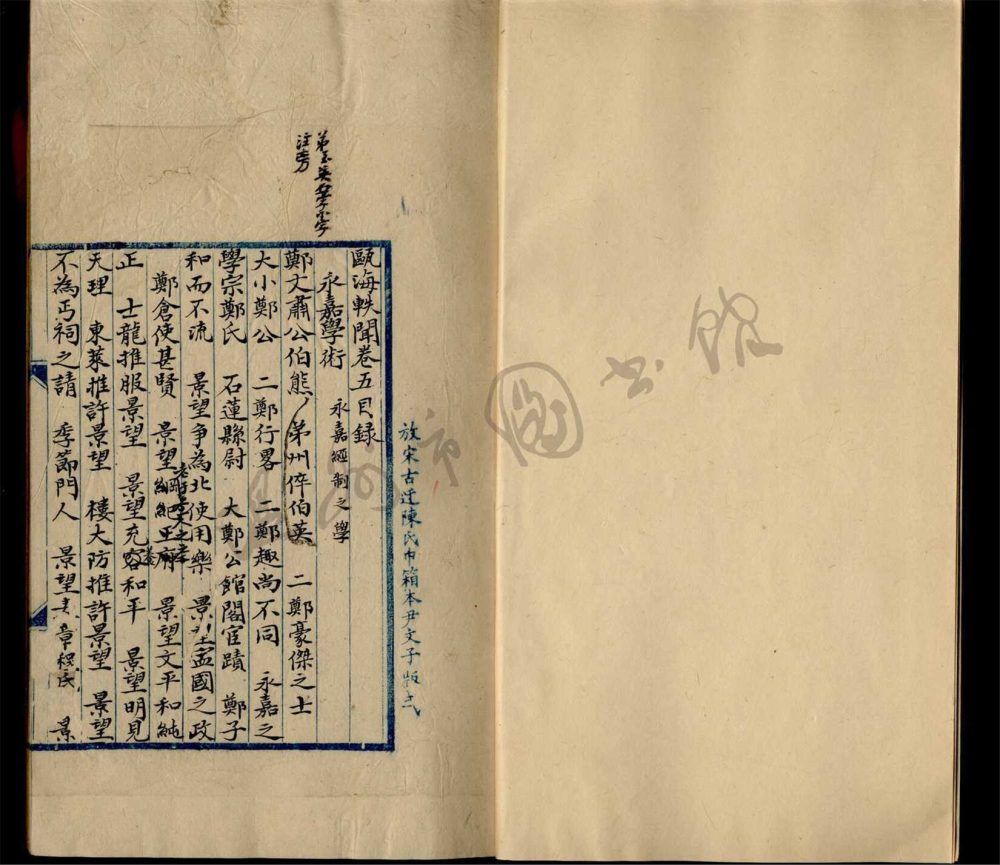 放宋古迂陳氏巾箱本尹文子版式
甌海軼聞卷五目錄
永嘉學術 永嘉經制之學
鄭文肅公伯熊 弟州倅伯英 二鄭豪傑之士
大小鄭公 二鄭行畧 二鄭趣尚不同 永嘉之
學宗鄭氏 石蓮縣尉 大鄭公館閣宦蹟 鄭子
和而不流 景望爭為北使用樂 景望孟國之政
鄭倉使甚賢 景望王府 景望文平和純
正 士龍推服景望 景望充容和平 景望明見
天理 東萊推許景望 樓大防推許景望 景望
不為丐祠之請 季節門人 景望表章程氏 景
弟
注旁
圖書館